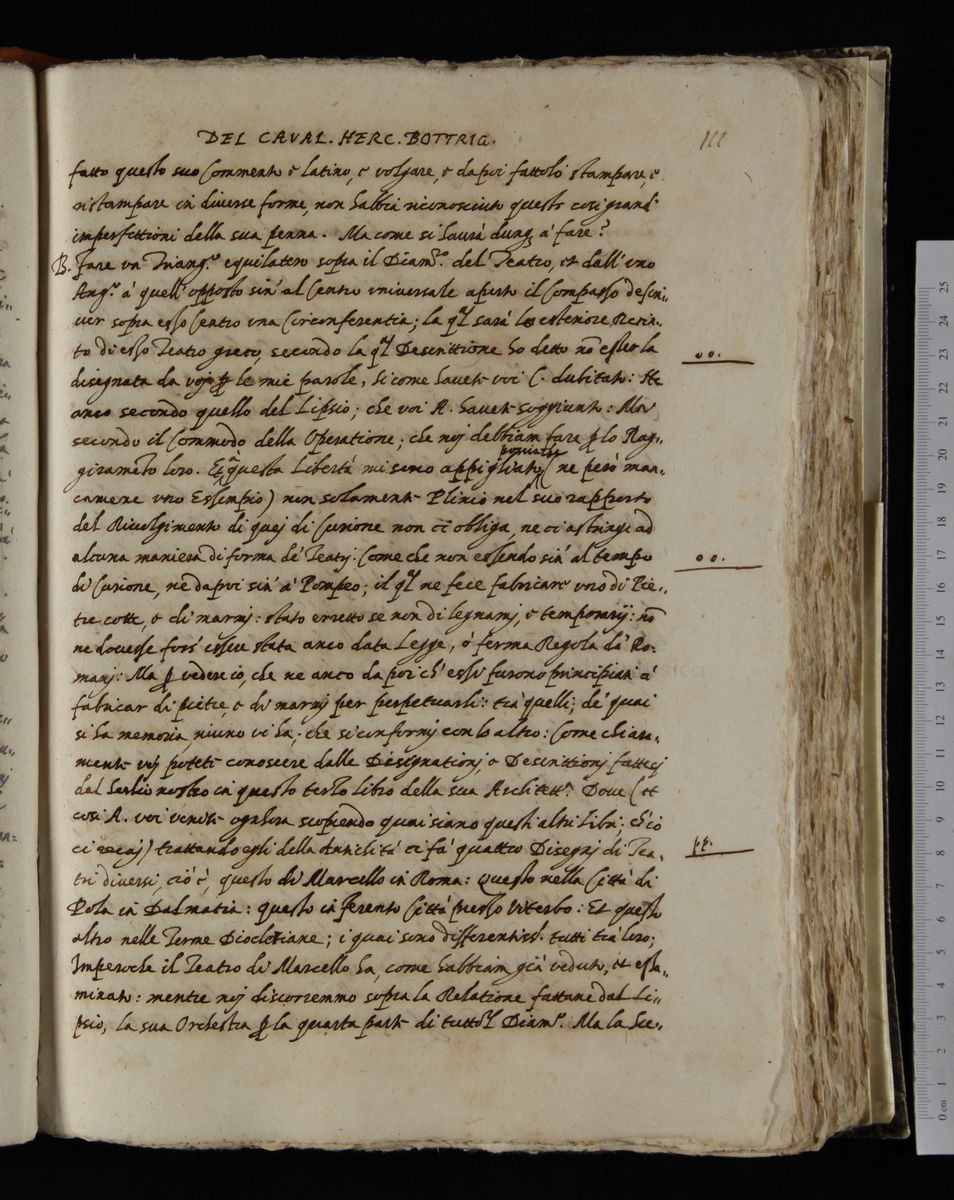 DEL CAVAL. HERC. BOTTRIG.
111
fatto questo suo Commento e latino, e volgare, e dapoi fattolo stampare, e
ristampare in diverse forme, non habbia riconosciuto queste cosi grandi
imperfettioni della sua penna. Ma come si haurà dunq; à fare?
B. Fare un Triang.º equilatero sopra il Diam.º del Teatro, et dall' uno
Ang.º à quell' opposto sin' al Centro universale aperto il compasso descri,,
ver sopra esso Centro una Circonferentia; la ql sarà lo esteriore Recin,,
to di esso Teatro greco, secondo la ql Descrittione ho detto nõ esser la
disegnata da voi p le mie parole, si come havete voi C. dubitato: Ne
anco secondo quello del Lipsio; che voi A. havete soggiunto: Ma
secondo il Commodo della Operatione; che noj debbiam fare p lo Rag,,
giramẽto loro. Et à questa Libertà mi sono appigliato ne però man,,
camene uno Essempio) non solamente Plinio nel suo rapporto
del Rivolgimento di quej di Curione non ci obliga, ne ci astringe ad
alcuna maniera di forma de' Teatrj. Come che non essendo sin' al tempo
di Curione, ne dapoi sin' à Pompeo; il ql ne fece fabricare uno di Pie,,
tre cotte, e di marmj: stato erretto se non di legnamj, e temporarij: nõ
ne dovesse fors' esser stata anco data Legge, ò ferma Regola dà Ro,,
manj: Ma p vedere ciò, che ne anco da poi ch' essi furono principiati à
fabricar di pietre, e di marmj per perpetuarli: trà quelli; de' quai
si ha memoria, niuno vi hà, che si conformj con lo altro: Come chiara,,
mente voj potete conoscere dalle Designationj, e Descrittionj fatteci
dal Serlio nostro in questo terzo libro della sua Architett.ª Dove (et
cosi A. voi venite ogn'hora scoprendo quai siano questi altri libri, ch'io
ci recaj) trattando egli della Antichità ci fà quattro Disegnj di Tea,,
tri diversi, ciò è, questo di Marcello in Roma: Questo nella Città di
Pola in Dalmatia: questo in Ferento Città presso Viterbo: Et questo
altro nelle Terme Diocletiane; i quai sono differentiss. tutti trà loro;
Imperoche il Teatro di Marcello ha, come habbiam già veduto, et essa,,
minato: mentre noj discorremmo sopra la Relatione fattane dal Li,,
psio, la sua Orchestra p la quarta parte di tutto 'l Diam.º Ma la Sce,,
oo.
oo.
pp.